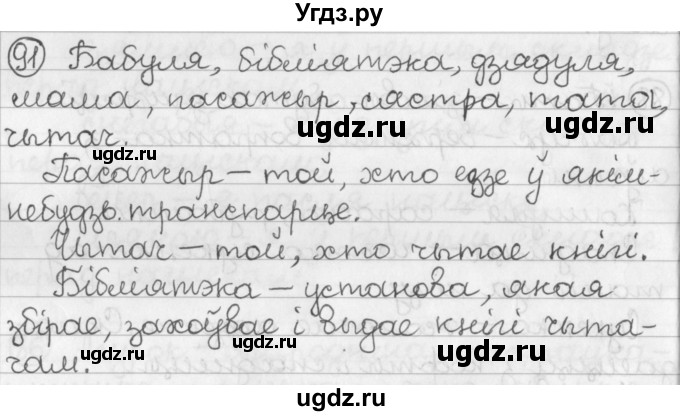 Угдз.ру
91 Бабуля, бібліятэка, дзядуля,
мама, пасажыр, сястра, тата,
чытач.
Пасажыр – той, хто едзе ў якім-
небудзь транспарце.
Чытач – той, хто чытае кнігі.
Бібліятэка – установа, якая
збірае, захоўвае і выдае кнігі чыта-
чам.
ugdz.ru
ugdz.ru
ugdz.ru
ugdz.ru
ugdz.ru
ugdz.ru
ugdz.ru
ugdz.ru